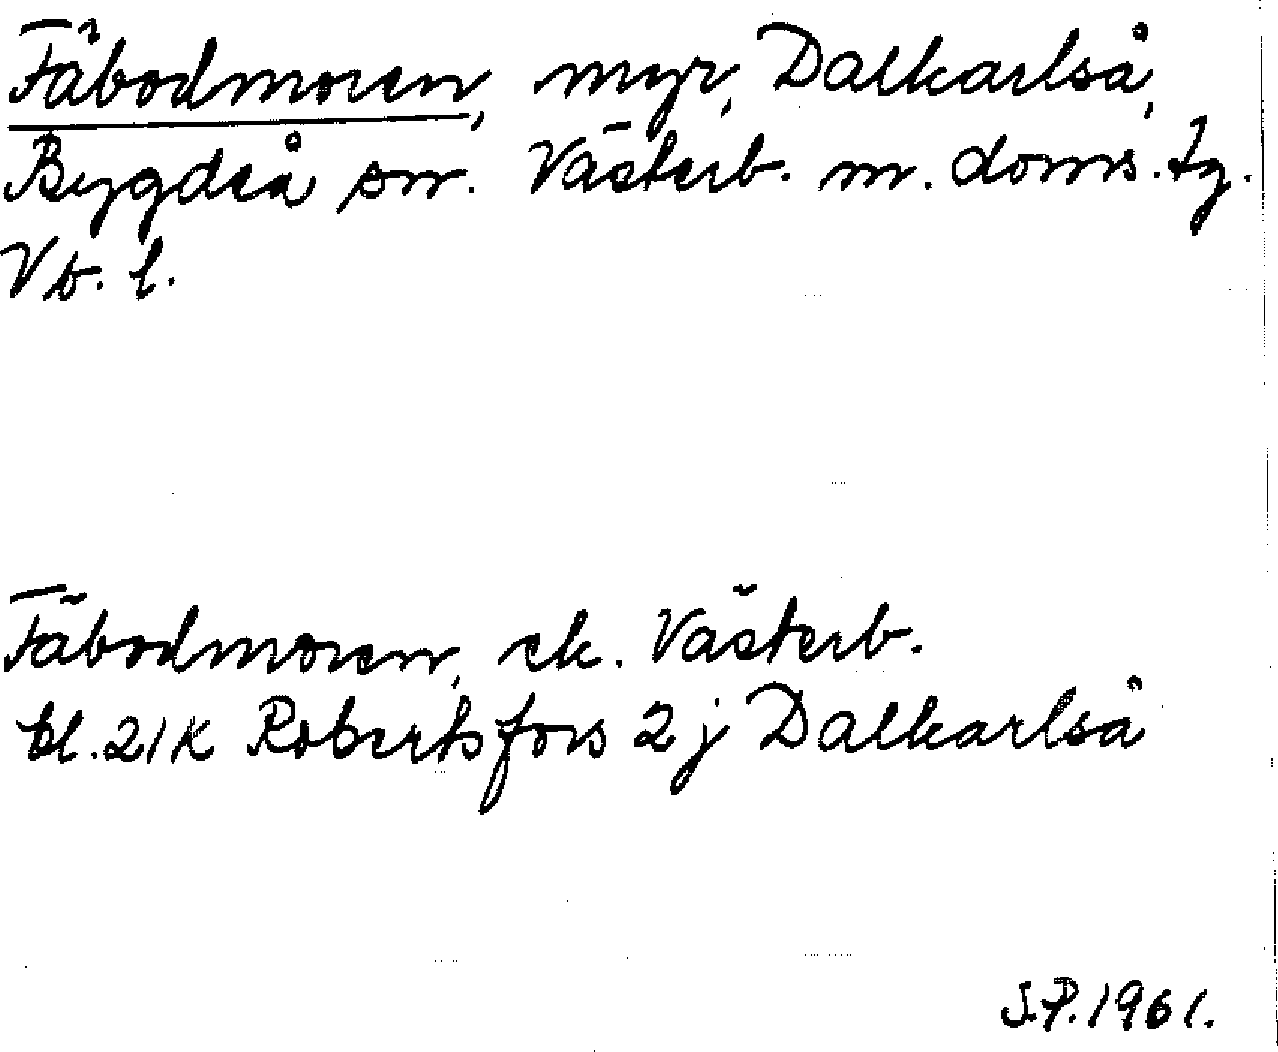 Fäbodmoren, myr, Dalkarlså,
Bygdeå sn. Västerb. m. doms. tg.
Vb. l.
Fäbodmoren, ek. Västerb.
bl. 21K Robertsfors 2 j Dalkarlså
S.P. 1961.